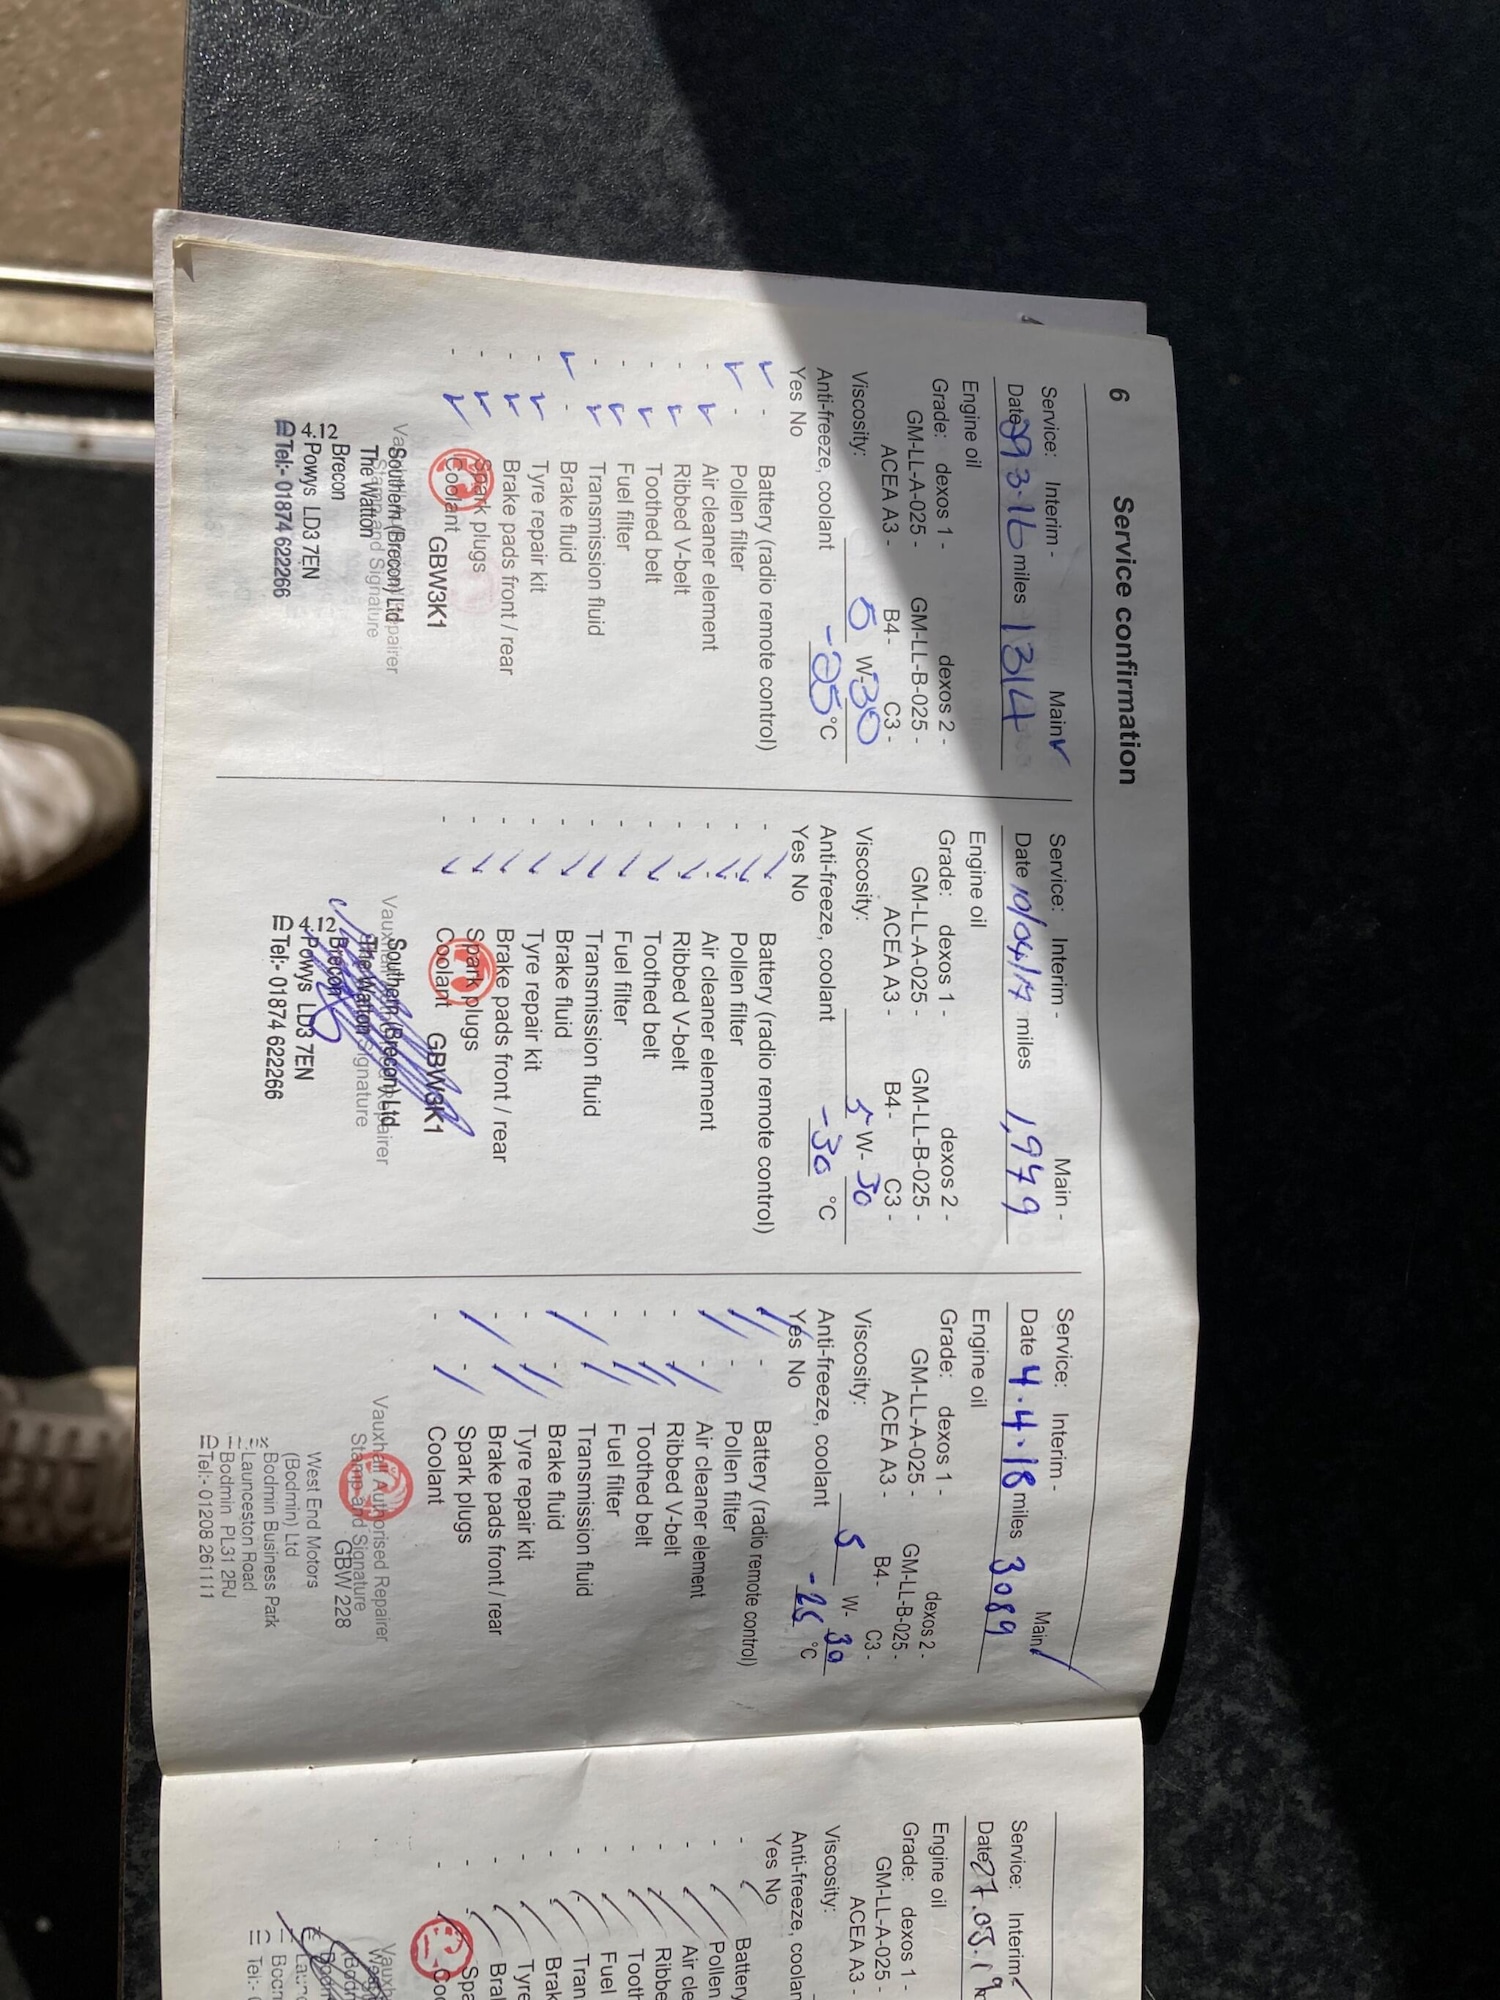 6 Service confirmation
Service: Interim - Main ✓
Date 29 3.16 miles 1314
Engine oil
Grade: dexos 1 - dexos 2 -
GM-LL-A-025 - GM-LL-B-025 -
ACEA A3 - B4 - C3 -
Viscosity: 5 W- 30
Anti-freeze, coolant -25 °C
Yes No
✓ - Battery (radio remote control)
✓ - Pollen filter
- ✓ Air cleaner element
- ✓ Ribbed V-belt
- ✓ Toothed belt
- ✓ Fuel filter
- ✓ Transmission fluid
✓ - Brake fluid
- ✓ Tyre repair kit
- ✓ Brake pads front / rear
- ✓ Spark plugs
- ✓ Coolant GBW3K1
Southern (Brecon) Ltd
The Watton
4.12 Brecon
Powys LD3 7EN
Tel:- 01874 622266
Service: Interim - Main -
Date 10/04/17 miles 1,979
Engine oil
Grade: dexos 1 - dexos 2 -
GM-LL-A-025 - GM-LL-B-025 -
ACEA A3 - B4 - C3 -
Viscosity: 5 W- 30
Anti-freeze, coolant -30 °C
Yes No
Battery (radio remote control)
Pollen filter
Air cleaner element
Ribbed V-belt
Toothed belt
Fuel filter
Transmission fluid
Brake fluid
Tyre repair kit
Brake pads front / rear
Spark plugs
Coolant GBW3K1
Southern (Brecon) Ltd
The Watton
4.12 Brecon
Powys LD3 7EN
Tel:- 01874 622266
Service: Interim - Main ✓
Date 4.4.18 miles 3089
Engine oil
Grade: dexos 1 - dexos 2 -
GM-LL-A-025 - GM-LL-B-025 -
ACEA A3 - B4 - C3 -
Viscosity: 5 W- 30
Anti-freeze, coolant -25 °C
Yes No
Battery (radio remote control)
Pollen filter
Air cleaner element
Ribbed V-belt
Toothed belt
Fuel filter
Transmission fluid
Brake fluid
Tyre repair kit
Brake pads front / rear
Spark plugs
Coolant
Vauxhall Authorised Repairer
Stamp and Signature
GBW 228
West End Motors
(Bodmin) Ltd
Bodmin Business Park
Launceston Road
Bodmin PL31 2RJ
Tel:- 01208 261111
Service: Interim
Date 27.03.19
Engine oil
Grade: dexos 1 -
GM-LL-A-025 -
ACEA A3 -
Viscosity:
Anti-freeze, coolan
Yes No
Battery
Pollen
Air cle
Ribbe
Tooth
Fuel
Tran
Brak
Tyre
Bra
Spa
Coo
Vauxh